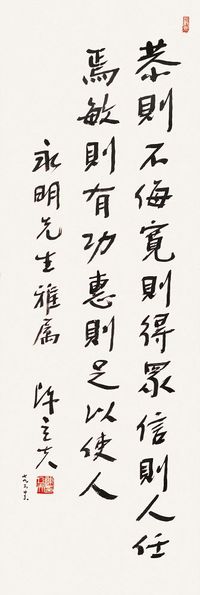 恭則不侮寬則得眾信則人任
焉敏則有功惠則足以使人
永明先生雅屬
陳立夫